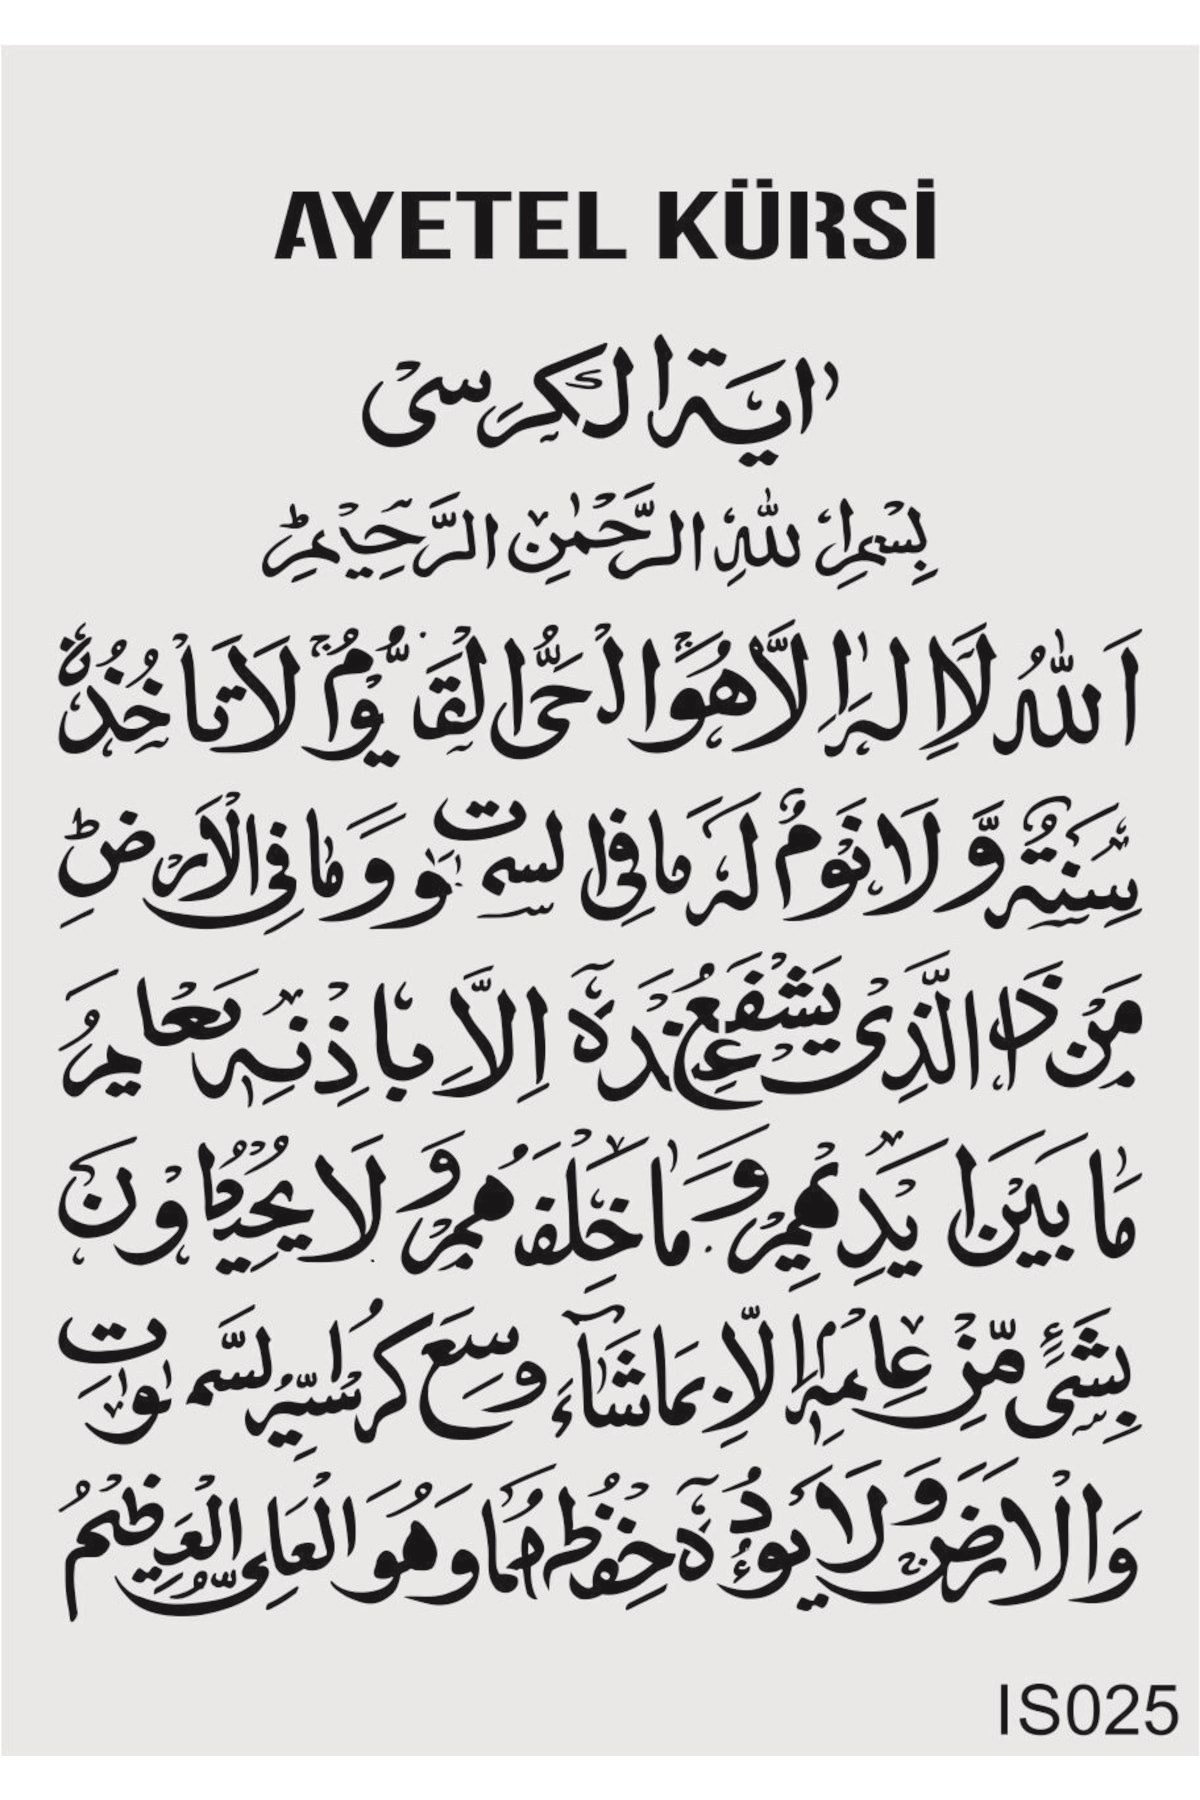 AYETEL KÜRSİ
اية الكرسى
بِسْمِ اللّٰهِ الرَّحْمٰنِ الرَّحِيْمِ
اَللّٰهُ لَا اِلٰهَ اِلَّا هُوَ اَلْحَىُّ الْقَيُّوْمُ لَا تَاْخُذُهٗ
سِنَةٌ وَّلَا نَوْمٌ لَهٗ مَا فِى السَّمٰوٰتِ وَمَا فِى الْاَرْضِ
مَنْ ذَا الَّذِىْ يَشْفَعُ عِنْدَهٗ اِلَّا بِاِذْنِهٖ يَعْلَمُ
مَا بَيْنَ اَيْدِيْهِمْ وَمَا خَلْفَهُمْ وَلَا يُحِيْطُوْنَ
بِشَىْءٍ مِّنْ عِلْمِهٖ اِلَّا بِمَا شَآءَ وَسِعَ كُرْسِيُّهُ السَّمٰوٰتِ
وَالْاَرْضَ وَلَا يَئُوْدُهٗ حِفْظُهُمَا وَهُوَ الْعَلِىُّ الْعَظِيْمُ
IS025